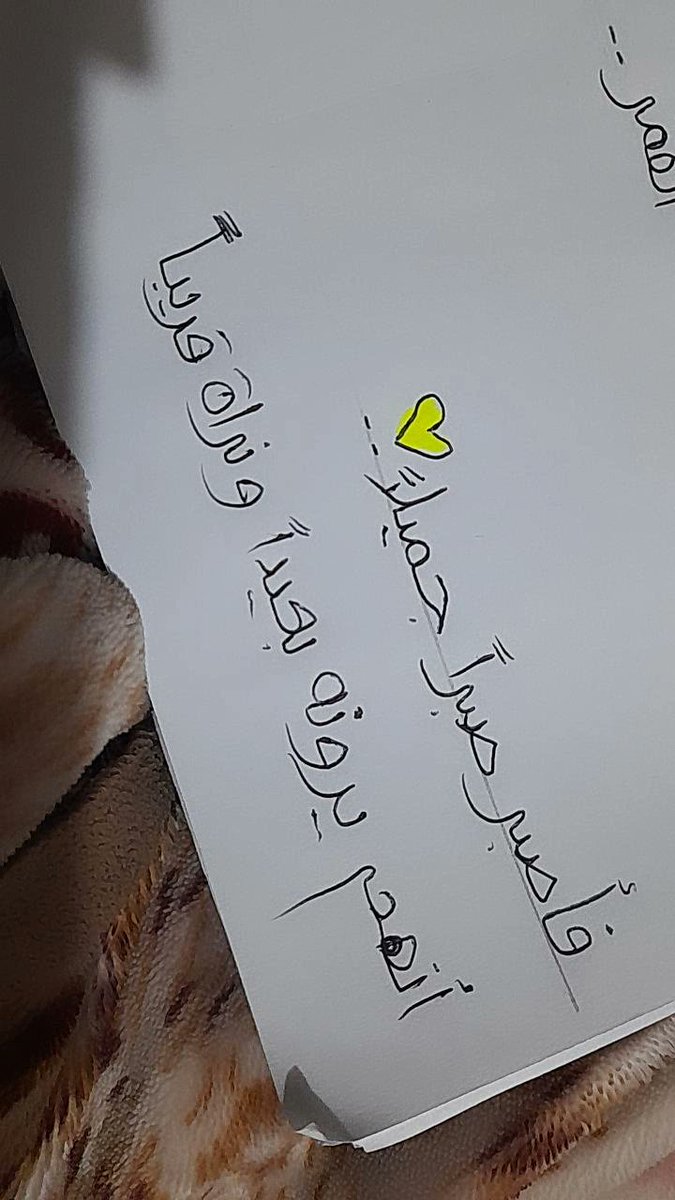 العمر ..
فأصبر صبراً جميلاً ..
أنهم يرونه بعيداً ونراهَ قَريباً